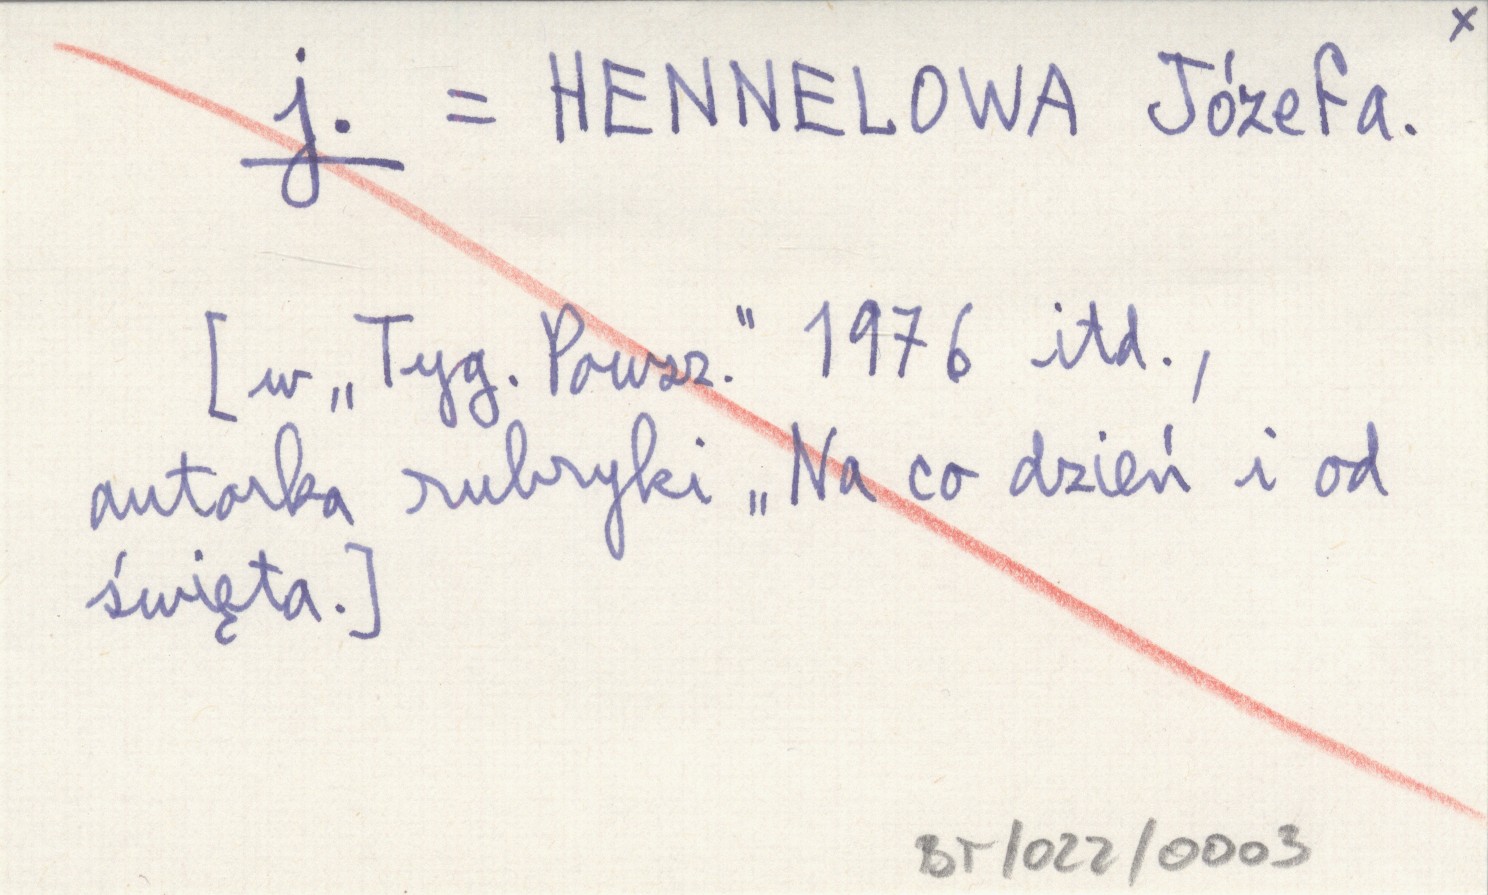 x
j. = HENNELOWA Józefa.
[w „Tyg. Powsz." 1976 itd.,
autorka rubryki „Na co dzień i od
święta.]
BT/022/0003